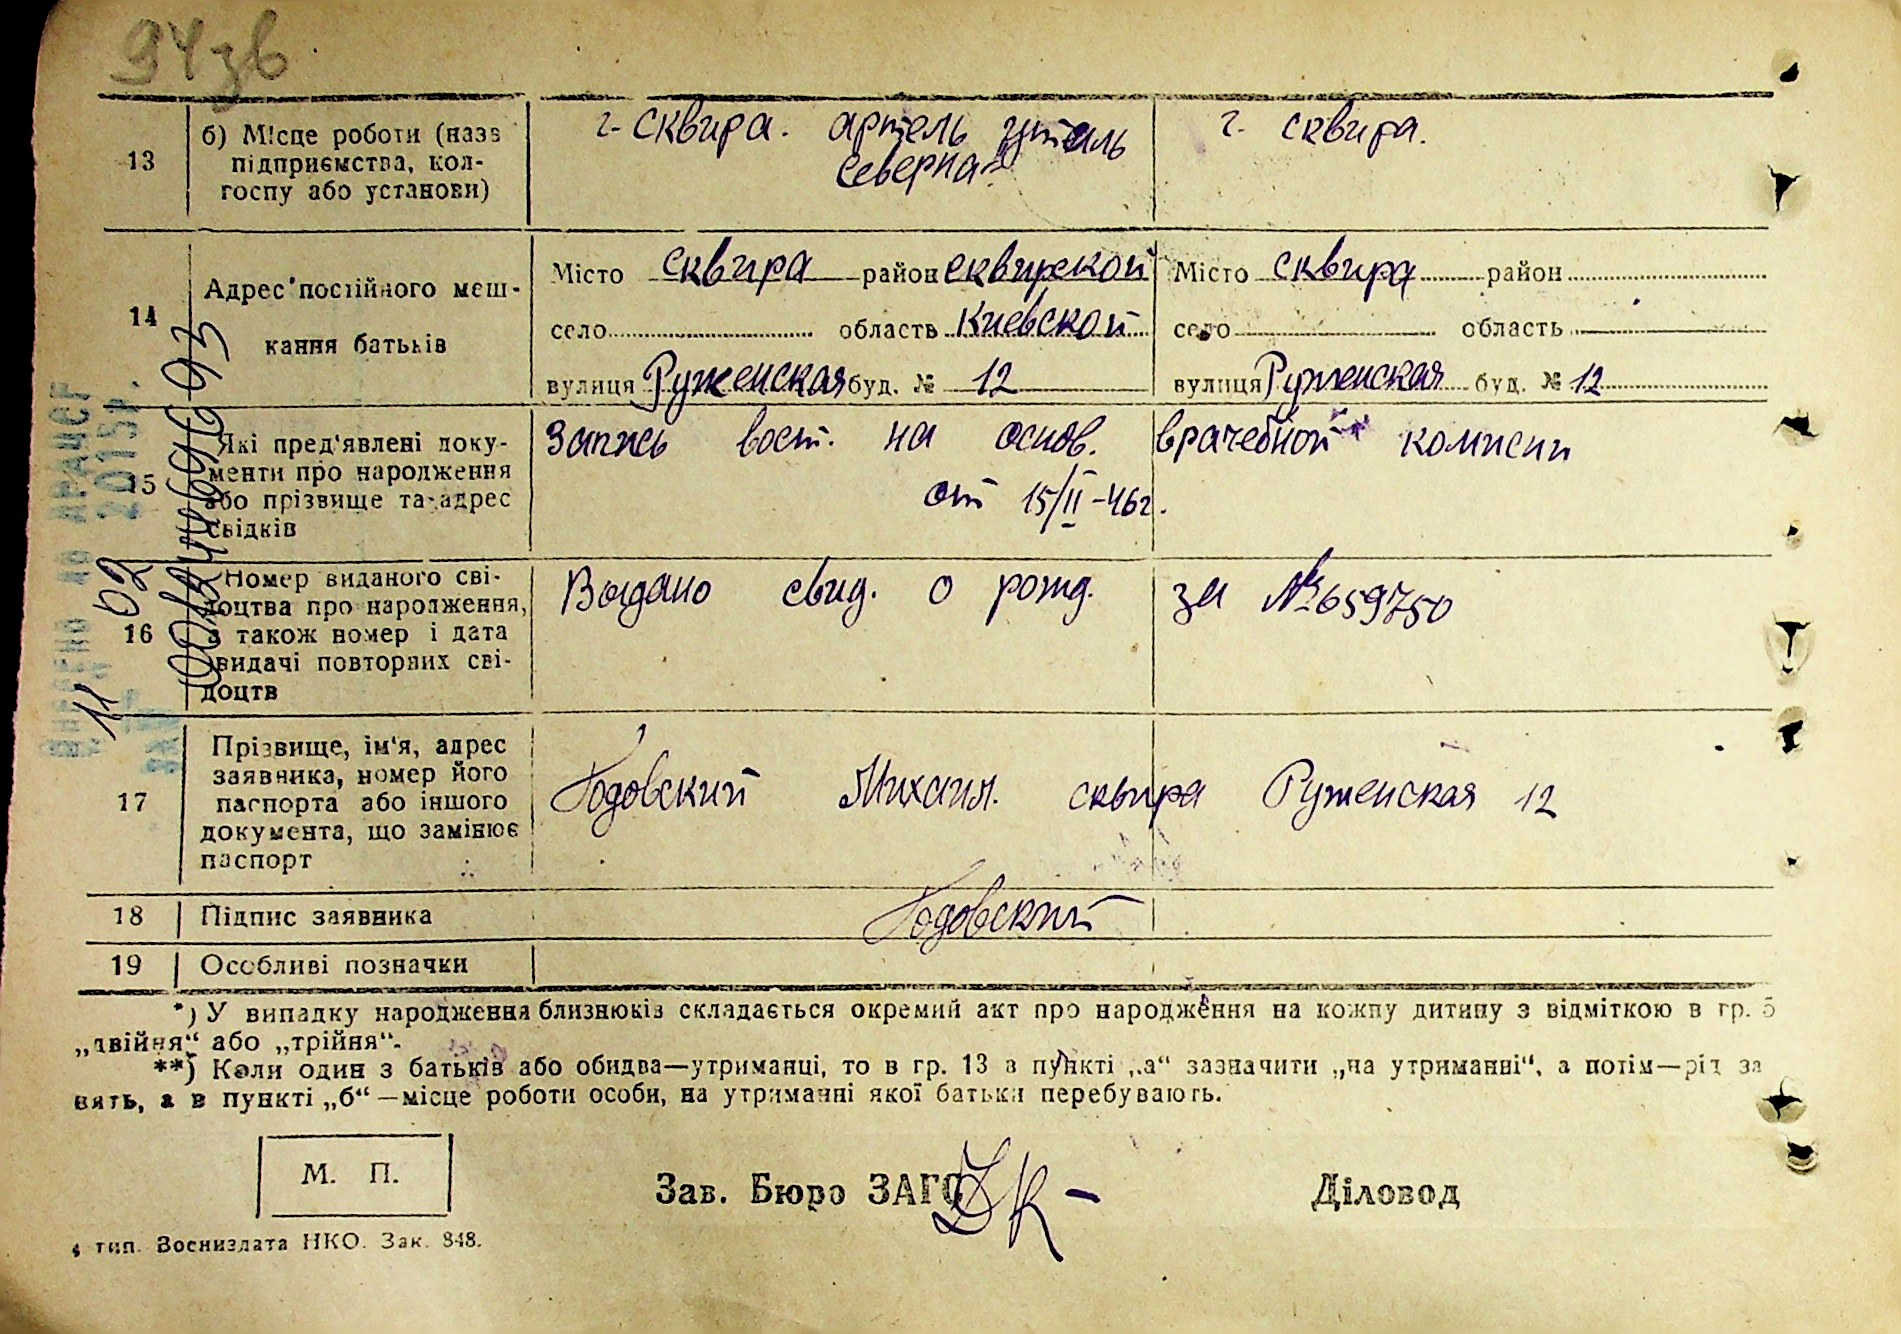 94зв
13
б) Місце роботи (назв
підприємства, кол-
госпу або установи)
г. Сквира. артель утиль
северна
г. Сквира.
14
Адрес постійного меш-
кання батьків
Місто Сквира район Сквирской
село область Киевской
вулиця Руженская буд. № 12
Місто Сквира район
село область
вулиця Руженская буд. № 12
15
Які пред'явлені доку-
менти про народження
або прізвище та адрес
свідків
Запись вост. на основ. врачебной комисии
от 15/II-46г.
16
Номер виданого сві-
доцтва про народження,
а також номер і дата
видачі повторних сві-
доцтв
Выдано свид. о рожд. за № 659750
17
Прізвище, ім'я, адрес
заявника, номер його
паспорта або іншого
документа, що замінює
паспорт
Годовский Михаил. Сквира Руженская 12
18
Підпис заявника
Годовский
19
Особливі позначки
*) У випадку народження близнюків складається окремий акт про народження на кожну дитину з відміткою в гр. 5
„двійня“ або „трійня“.
**) Коли один з батьків або обидва—утриманці, то в гр. 13 в пункті „а“ зазначити „на утриманні“, а потім—рід за
нять, а в пункті „б“—місце роботи особи, на утриманні якої батьки перебувають.
М. П.
Зав. Бюро ЗАГС
Діловод
4 тип. Воениздата НКО. Зак. 848.
Внесено до ДРАЦСГ
11 02 2015р.